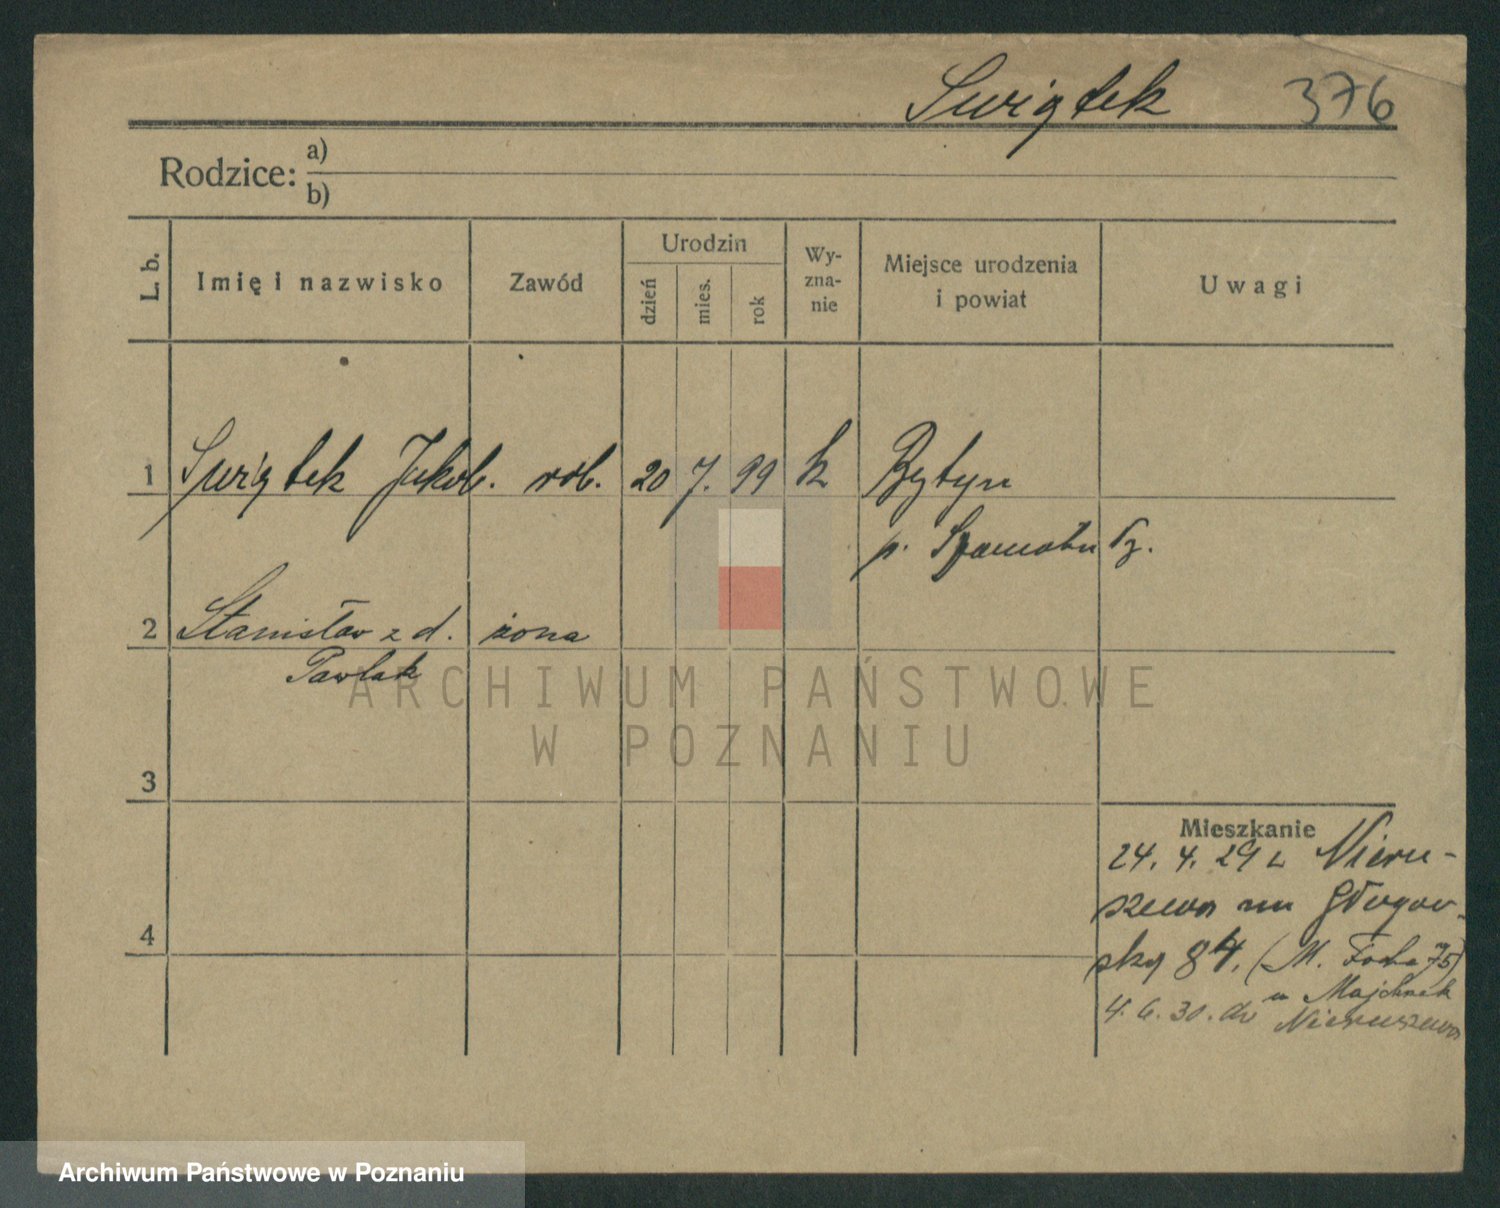 Swiątek 376
Rodzice: a)
b)
L. b.
Imię i nazwisko
Zawód
Urodzin
dzień
mies.
rok
Wy-
zna-
nie
Miejsce urodzenia
i powiat
Uwagi
1 Swiątek Jakób. rob. 20 7. 99 k Bytyn
p. Szamotuły.
2 Stanisław z d. żona
Pawlak
3
Mieszkanie
24. 4. 29 z Nieru-
szewa
4
84. (M. Focha 75)
u Majchrzak
4. 6. 30. do Nieruszewa
ARCHIWUM PAŃSTWOWE
W POZNANIU
Archiwum Państwowe w Poznaniu